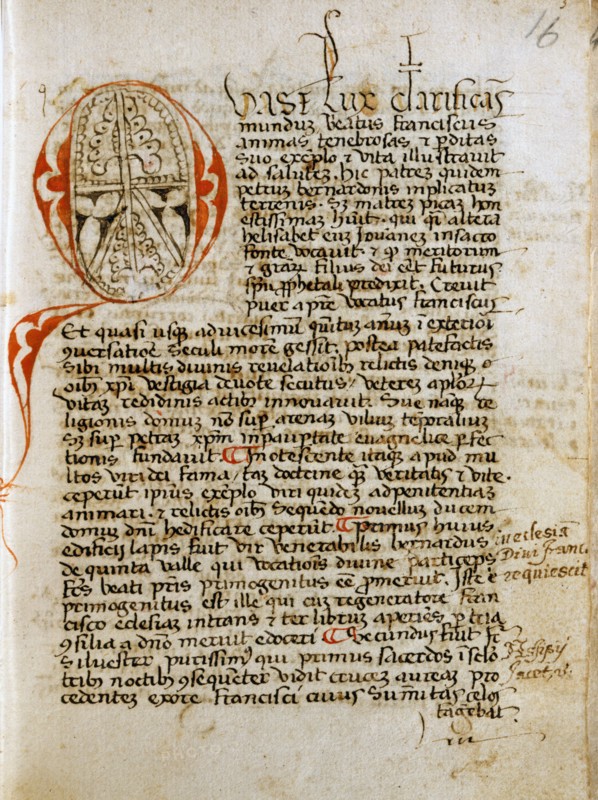 16
Quasi lux clarificās
munduȝ beatus Franciscus
animas tenebrosas ⁊ p̱ditas
suo exēplo ⁊ vita illustravit
ad salutēȝ. hic patreȝ quideȝ
petruȝ bernardonis inplicatuȝ
terrenis. Sȝ matreȝ picaȝ hon
estissimaȝ huit. qui q̄i altera
helisabet euȝ Jouaneȝ in sacro
fonte vocavit. ⁊ q̱ meritorum
⁊ grar̄ filius dei eēt futurus
sp̄m ꝓphetali predixit. Crevit
puer a pr̄e vocatus Franciscus
Et quasi usqȝ ad vicesimū quītuȝ annuȝ ī exteriori
ꝯversatiōe seculi morē gessit. postea patefactis
sibi multis divinis revelatiōibȝ relictis deniqȝ
oībȝ xp̄i vestigia devote secutus / veterēȝ aplorꝝ
vitaȝ actibȝ innovavit. Sue naqȝ re
ligionis domuȝ nō sup̱ arenaȝ viliuȝ tēporaliuȝ
Sȝ sup̱ petraȝ xp̄m in paup̱tate evāgelice p̱fec
tionis fundavit. ¶ Inotescente itaqȝ apud mu
ltos viri dei fama / taȝ doctrine q̄ȝ veritatis ⁊ vite.
ceperūt ipsius exēplo viri quidēȝ ad penitentiaȝ
animari. ⁊ relictis oībȝ sequēdo novelluȝ duceȝ
domuȝ dn̄i hedificare ceperūt. ¶ primus huius
edificii lapis fuit vir venerabilis bernardus
de quinta valle qui vocatiōis divine particeps
fc̄s beati pr̄is primogenitus eē ꝓmeruit. Iste ē
primogenitus est ille qui cuȝ regeneratore Fran
cisco eclesiaȝ intrans ⁊ ter libruȝ aperiēs p̱ tria
ꝯsilia a dn̄o meruit edoceri ¶ Secundus fuit fr̄
silvester purissimꝰ qui primus sacerdos ī
tribȝ noctibȝ ꝯsequēter vidit cruceȝ aureaȝ pro
cedenteȝ ex ore Francisci cuius sūmitas celos
tāgebat.
in eclesiā
Divi franc.
requiescit